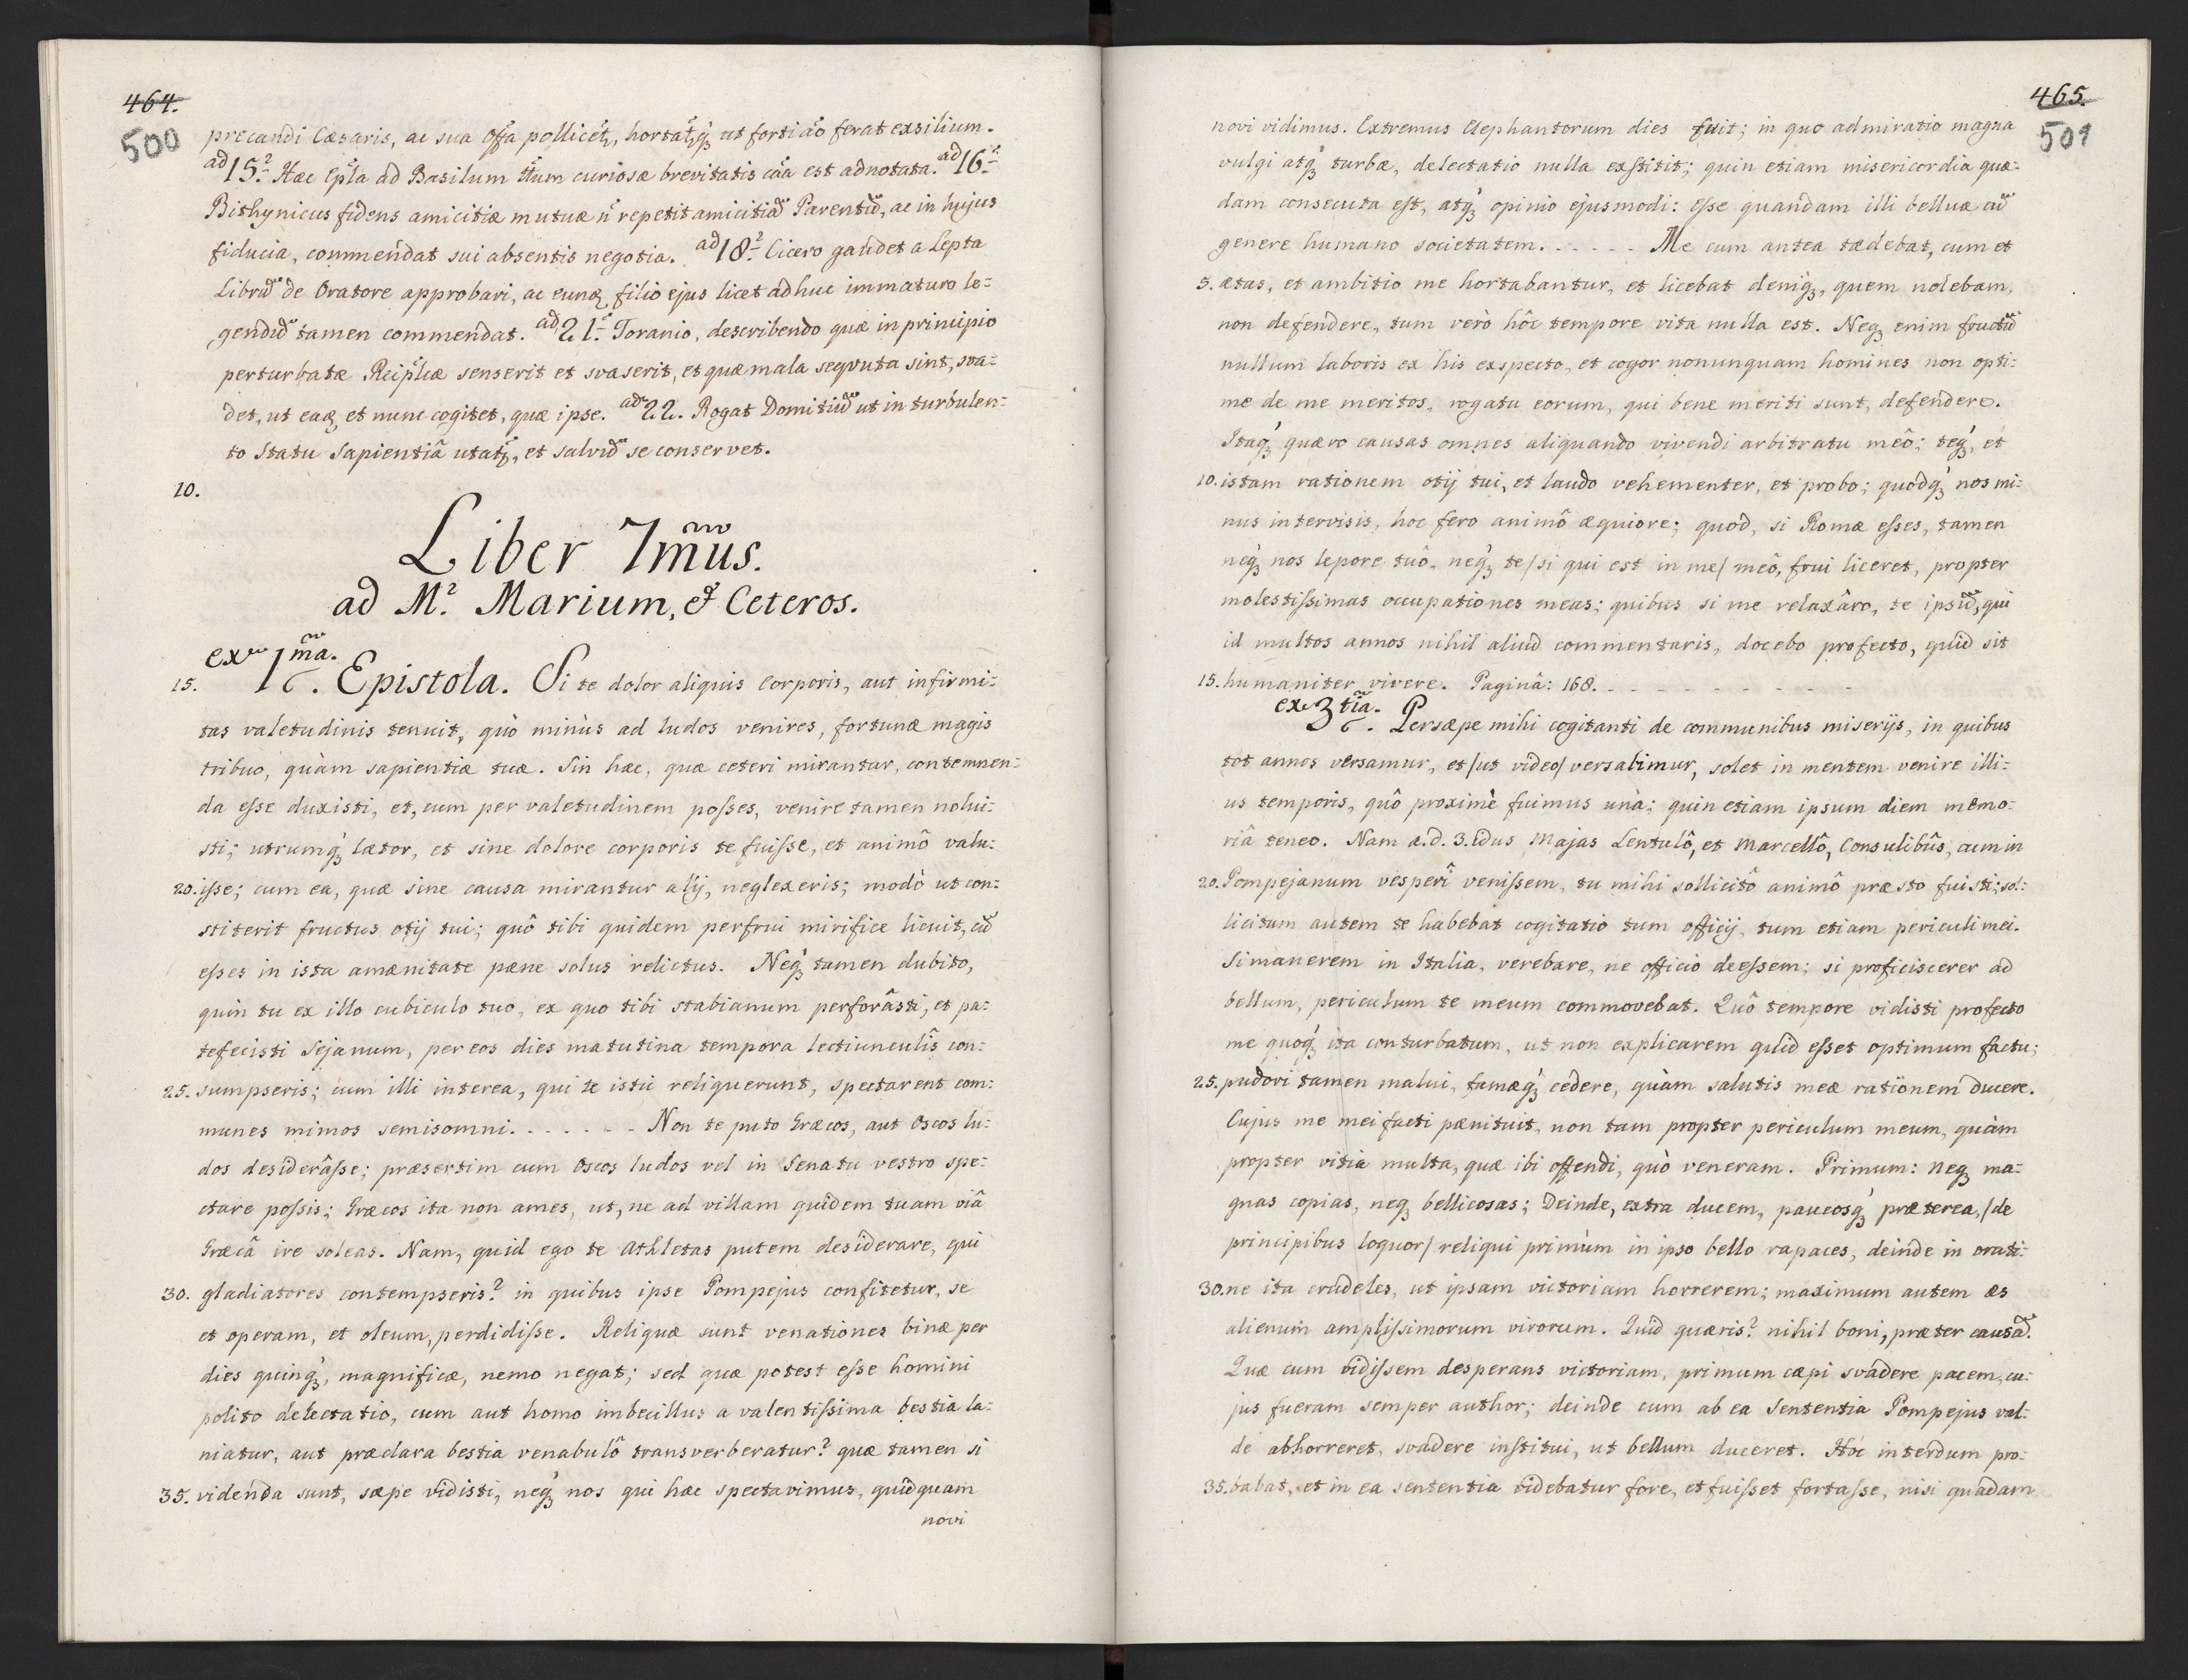 464.
500
precandi Cæsaris, ac sua offa pollicet, hortatq́ ut forti ao ferat exsilium.
ad 15.ꝛ Hæc Epla ad Basilum ttum curiosæ brevitatis caa est adnotata. ad 16.
Bithynicus fidens amicitiæ mutuæ n repetit amicitia Parentu, ac in hujus
fiducia, commendat sui absentis negotia. ad 18.ꝛ Cicero gaudet a Lepta
Libru de Oratore approbari, ac eunq filio ejus licet adhuc immaturo le=
gendu tamen commendat. ad 21. Toranio, describendo quæ in principio
perturbatæ Reiplicæ senserit et svaserit, et quæ mala seqvuta sint, sva=
det, ut eaq et nunc cogitet, quæ ipse. ad 22. Rogat Domitiu ut in turbulen=
to Statu Sapientiâ utat, et salvu se conservet.
10.
Liber 7mus.
ad M.ꝛ Marium, & Ceteros.
ex 1ma.
15. Epistola. Si te dolor aliquis Corporis, aut infirmi=
tas valetudinis tenuit, quò minùs ad ludos venires, fortunæ magis
tribuo, quàm sapientiæ tuæ. Sin hæc, quæ ceteri mirantur, contemnen=
da esse duxisti, et, cum per valetudinem posses, venire tamen nolui=
sti; utrumq́ lætor, et sine dolore corporis te fuisse, et animô valu=
20. isse; cum ea, quæ sine causa mirantur alij, neglexeris; modò ut con=
stiterit fructus otij tui; quô tibi quidem perfrui mirifice licuit, cu
esses in ista amænitate pæne solus relictus. Neq́ tamen dubito,
quin tu ex illo cubiculo tuo, ex quo tibi stabianum perforâsti, et pa=
tefecisti Sejanum, per eos dies matutina tempora lectiunculîs con=
25. sumpseris; cum illi interea, qui te istic reliquerunt, spectarent com=
munes mimos semisomni. - - - - - - Non te puto Græcos, aut Oscos lu=
dos desiderâsse; præsertim cum Oscos ludos vel in Senatu vestro spe=
ctare possis; Græcos ita non ames, ut, ne ad villam quidem tuam viâ
Græcâ ire soleas. Nam, quid ego te Athletas putem desiderare, qui
30. gladiatores contempseris? in quibus ipse Pompejus confitetur, se
et operam, et oleum, perdidisse. Reliquæ sunt venationes binæ per
dies quinq́, magnificæ, nemo negat; sed quæ potest esse homini
polito delectatio, cum aut homo imbecillus a valentissima bestia la=
niatur, aut præclara bestia venabulô transverberatur? quæ tamen si
35. videnda sunt, sæpe vidisti, neq́ nos qui hæc spectavimus, quidquam
novi
465.
501
novi vidimus. Extremus Elephantorum dies fuit; in quo admiratio magna
vulgi atq́ turbæ, delectatio nulla exstitit; quin etiam misericordia quæ=
dam consecuta est, atq́ opinio ejusmodi: esse quandam illi belluæ cu
genere humano societatem. - - - - - Me cum antea tædebat, cum et
5. ætas, et ambitio me hortabantur, et licebat deniq́, quem nolebam,
non defendere, tum verò hôc tempore vita nulla est. Neq enim fructu
nullum laboris ex his exspecto, et cogor nonunquam homines non opti=
me de me meritos, rogatu eorum, qui bene meriti sunt, defendere.
Itaq́ quæro causas omnes aliquando vivendi arbitratu meô; teq́, et
10. istam rationem otij tui, et laudo vehementer, et probo; quodq́ nos mi=
nus intervisis, hoc fero animô æquiore; quod, si Romæ esses, tamen
neq́ nos lepore tuô, neq́ te /si qui est in me/ meô, frui liceret, propter
molestissimas occupationes meas; quibus si me relaxâro, te ipsu, qui
id multos annos nihil aliud commentaris, docebo profecto, quid sit
15. humaniter vivere. Paginâ: 168. - - - - - - -
ex 3tia. Persæpe mihi cogitanti de communibus miserijs, in quibus
tot annos versamur, et /ut video/ versabimur, solet in mentem venire illi=
us temporis, quô proximè fuimus unà; quin etiam ipsum diem memo=
riâ teneo. Nam a.d. 3. idus Majas Lentulô, et Marcellô, Consulibûs, cum in
20. Pompejanum vesperî venissem, tu mihi sollicitô animô præsto fuisti; sol=
licitum autem te habebat cogitatio tum officij, tum etiam periculi mei.
Si manerem in Italia, verebare, ne officio deessem; si proficiscerer ad
bellum, periculum te meum commovebat. Quô tempore vidisti profecto
me quoq́ ita conturbatum, ut non explicarem quid esset optimum factu;
25. pudori tamen malui, famæq́ cedere, quàm salutis meæ rationem ducere.
Cujus me mei facti pænituit, non tam propter periculum meum, quàm
propter vitia multa, quæ ibi offendi, quò veneram. Primum: neq ma=
gnas copias, neq bellicosas; Deinde, extra ducem, paucosq́ præterea, /de
principibus loquor/ reliqui primùm in ipso bello rapaces, deinde in orati=
30. ne ita crudeles, ut ipsam victoriam horrerem; maximum autem æs
alienum amplissimorum virorum. Quid quæris? nihil boni, præter causa.
Quæ cum vidissem desperans victoriam, primum cæpi svadere pacem, cu=
jus fueram semper author; deinde cum ab ea Sententia Pompejus val=
de abhorreret, svadere institui, ut bellum duceret. Hoc interdum pro=
35. babat, et in ea sententia videbatur fore, et fuisset fortasse, nisi quadam